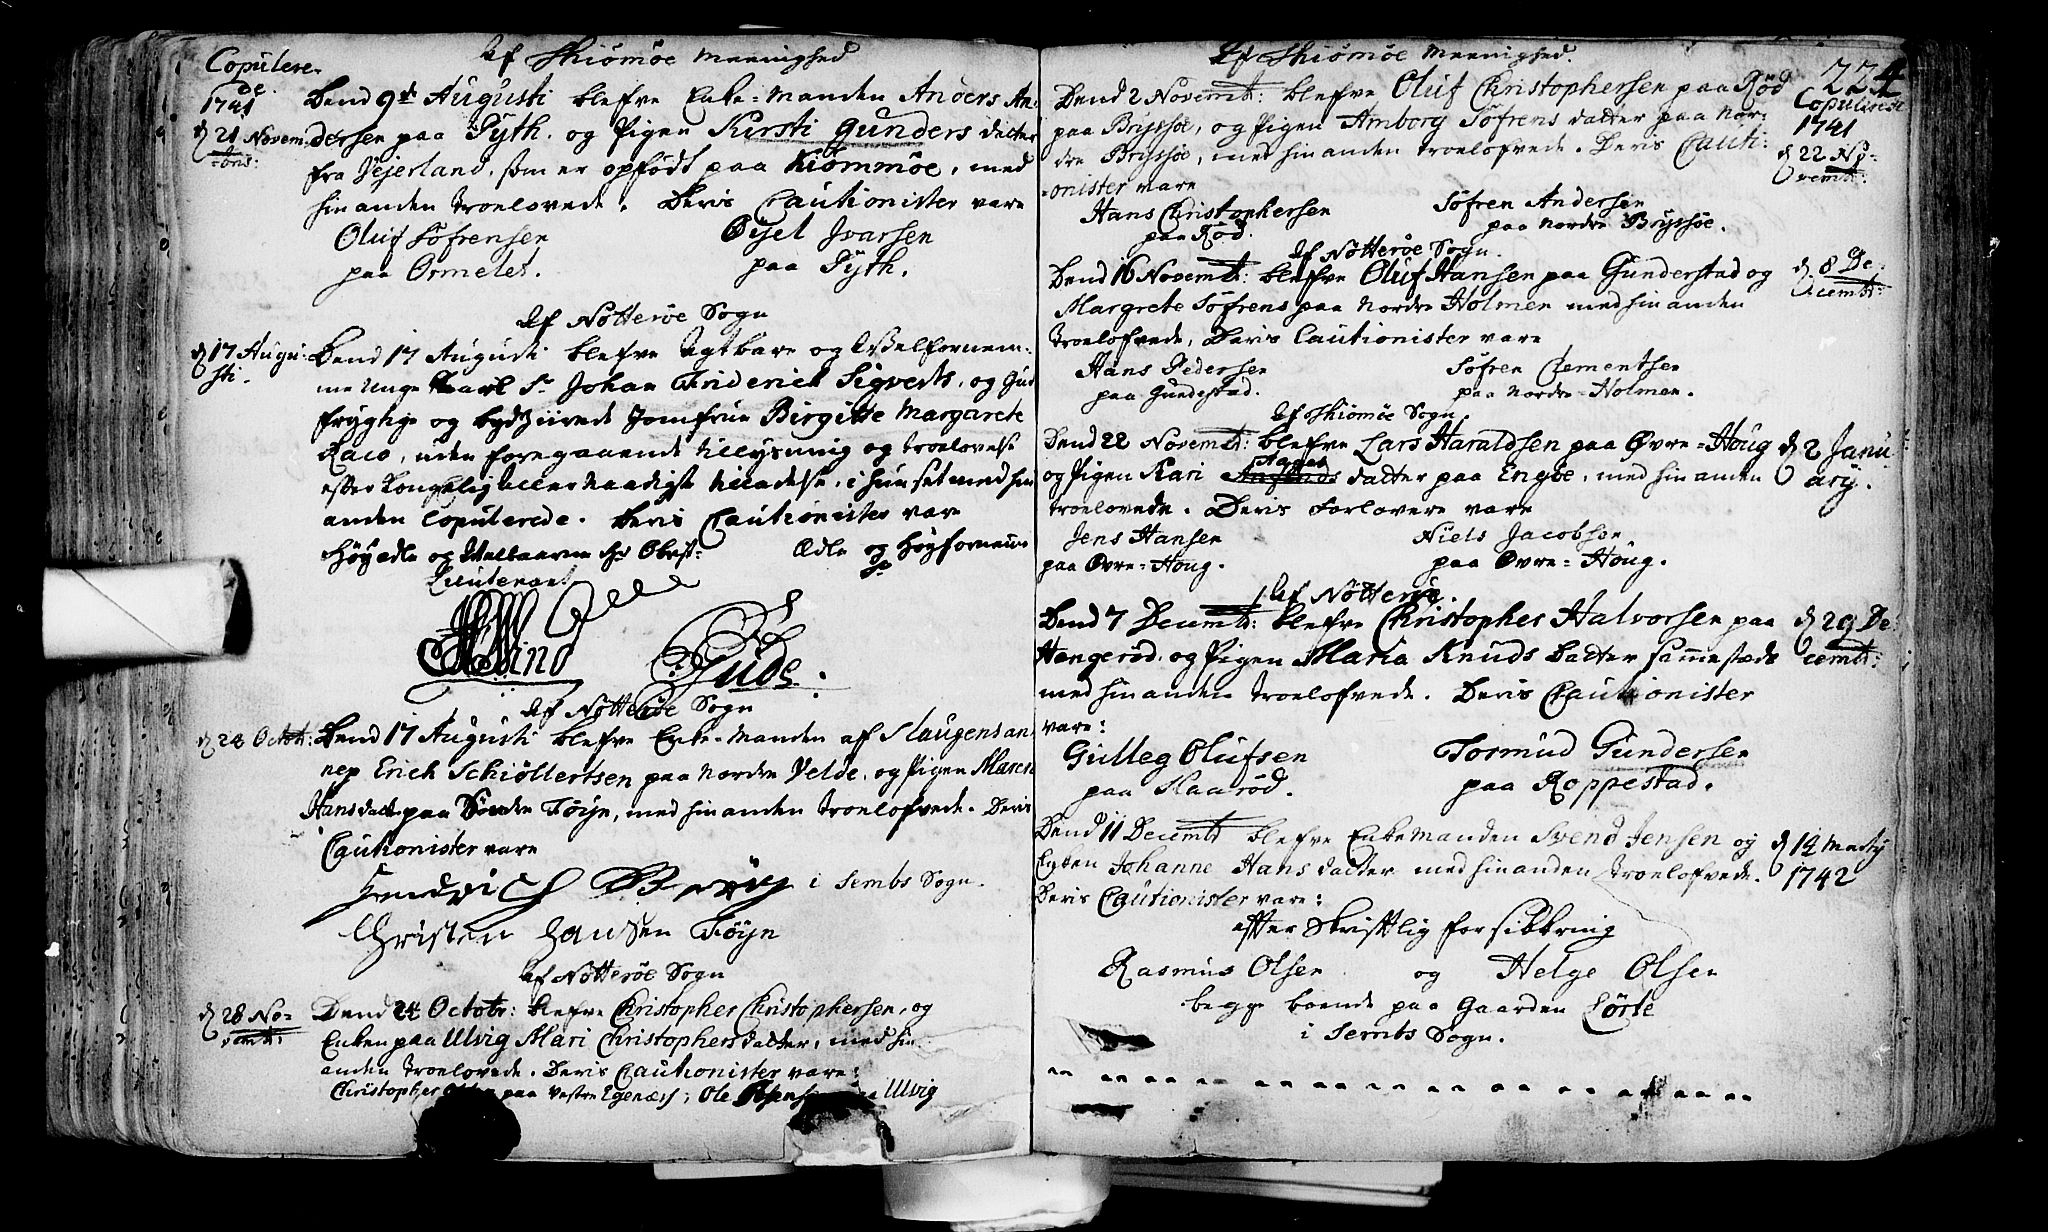 Copulere-
de.
1741
Af Skiömöe Meenighed
Dend 9de Augusti blefve Enke-Manden Anders An-
d. 21 Novem-
bris:
dersen paa Pyth, og Pigen Kirsti Gunders datter
fra Jejerland, som er opfödt paa Kiömmöe, med
hinanden troelovede. Deris Cautionister vare
Oluf Söfrensen
Öjel Ivarsen
paa Ormelet.
paa Pyth.
Af Nötteröe Sogn
d. 17 Augu-
sti.
Dend 17 Augusti blefve Agtbare og Velfornem-
me unge Karl Sr. Johan Friderich Sigverts, og Gud
frygtige og dydziirede Jomfrue Birgitte Margarete
uden foregaaende tillysning og troelovelse
efter Kongelig allernaadigst tilladelse, i huuset med hin
anden Copulerede. Deris Cautionister vare
Höyædle og Velbaarne Hr Obrist-
Lieutenant
Ædle og Höyfornemme
Sr
Gude:
Af Nötteröe Sogn
d. 28 Octobr:
Dend 17 Augusti blefve Enke-Manden af Slaugens an-
nex Erich Schiöllertsen paa Nordre Velde, og Pigen Maren
Hansdatt. paa Söndre Föyn, med hinanden troelofvede. Deris
Cautionister vare
i Sembs Sogn.
Christen Hansen Föyn
Af Nötteröe Sogn
d. 28 No-
vemb:
Dend 24 Octobr: blefve Christopher Christophersen, og
Enken paa Ulvig Mari Christophersdatter, med hin
anden troelovede. Deris Cautionister vare:
Christopher paa Vestre Egenæss; Ole Ulvig
Af Skiömöe Meenighed.
224
Copulerede
1741
Dend 2 Novembr: blefve Oluf Christophersen paa Röd
paa Bryssöe, og Pigen Amborg Söfrens datter paa Nor-
d. 22 No-
vembr:
dre Bryssöe, med hinanden troelofvede. Deris Cauti-
onister vare
Hans Christophersen
Söfren Andersen
paa Röd.
paa Nordre Bryssöe.
Af Nötteröe Sogn.
Dend 16 Novembr: blefve Oluf Hansen paa Gunderstad og
d. 8 De-
cembr:
Margrete Söfrens paa Nordre Holmen med hinanden
troelofvede, Deris Cautionister vare
Hans Pedersen
Söfren Clementsen
paa Gundestad.
paa Nordre-Holmen.
Af Skiömöe Sogn
Dend 22 Novembr: blefve Lars Haraldsen paa Øvre-Houg
d. 2 Janu-
ary.
og Pigen Kari Aages datter paa Engöe, med hinanden
troelovede. Deris Forlovere vare
Jens Hansen
Niels Jacobsen
paa Øvre-Houg.
paa Øvre-Houg.
Af Nötteröe.
Dend 7 Decembr: blefve Christopher Halvorsen paa
d. 29 De-
cembr:
Hengeröd, og Pigen Maria Knuds Datter sammestæds
med hinanden troelofvede. Deris Cautionister
vare:
Gulleg Olufsen
Tormud Gundersen
paa Skaaröd.
paa Roppestad.
Dend 11 Decembr blefve Enkemanden Svend Jensen og
d. 14 Marty
1742
Enken Johanne Hans datter med hinanden troelofvede.
Deris Cautionister vare:
efter Skriftlig forsikkring
Rasmus Olsen og Helge Olsen
begge boende paa Gaarden
i Sembs Sogn.